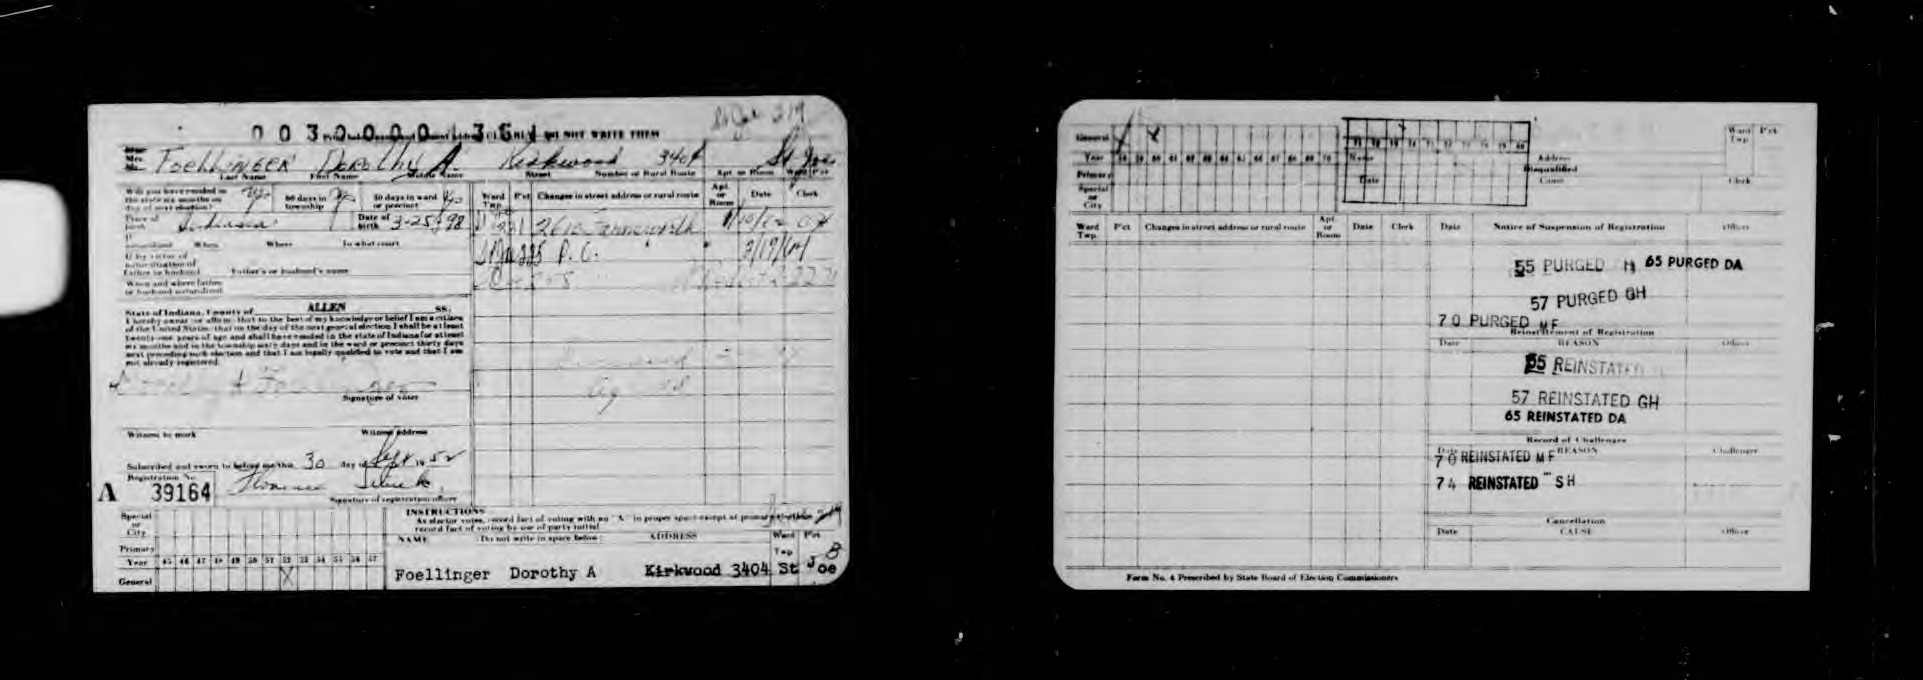 0030000 1361 DO NOT WRITE THEM
St Joe 219
Mrs. Foellinger Dorothy A. Kirkwood 3404 St Joe
Last Name First Name Middle Name Street Number or Rural Route Apt or Room Ward P'ct
Will you have resided in the state six months on day of next election? Yes 60 days in township Yes 30 days in ward or precinct Yes
Place of birth Indiana Date of birth 3-25-98
If naturalized When Where In what court
If by virtue of naturalization of Father or husband Father's or husband's name
When and where father or husband naturalized
Ward Twp. P'ct Changes in street address or rural route Apt. or Room Date Clerk
2610 Farnsworth
P.O. 3/17/64
State of Indiana, County of ALLEN SS.
I hereby swear or affirm that to the best of my knowledge or belief I am a citizen
of the United States; that on the day of the next general election I shall be at least
twenty-one years of age and shall have resided in the state of Indiana for at least
six months and in the township sixty days and in the ward or precinct thirty days
next preceding such election and that I am legally qualified to vote and that I am
not already registered.
Dorothy A Foellinger
Signature of voter
Witness to mark Witness address
Subscribed and sworn to before me this 30 day of Sept 1952
Registration No.
A 39164 Florence
Signature of registration officer
Special or City
Primary
Year 45 46 47 48 49 50 51 52 53 54 55 56 57
General X
INSTRUCTIONS
As elector votes, record fact of voting with an "X" in proper space except at primary
record fact of voting by use of party initial.
NAME (Do not write in space below) ADDRESS Ward Twp P'ct
Foellinger Dorothy A Kirkwood 3404 St Joe 8
General
Year 58 59 60 61 62 63 64 65 66 67 68 69 70
Primary
Special or City
71 72 73 74 75 76 77 78 79 80
Name
Date
Address
Disqualified
Cause
Ward Twp P'ct
Clerk
Ward Twp. P'ct Changes in street address or rural route Apt. or Room Date Clerk
Date Notice of Suspension of Registration Officer
55 PURGED H 65 PURGED DA
57 PURGED GH
70 PURGED MF
Reinstatement of Registration
Date REASON Officer
55 REINSTATED
57 REINSTATED GH
65 REINSTATED DA
Record of Challenges
Date REASON Challenger
70 REINSTATED MF
74 REINSTATED SH
Cancellation
Date CAUSE Officer
Form No. 4 Prescribed by State Board of Election Commissioners